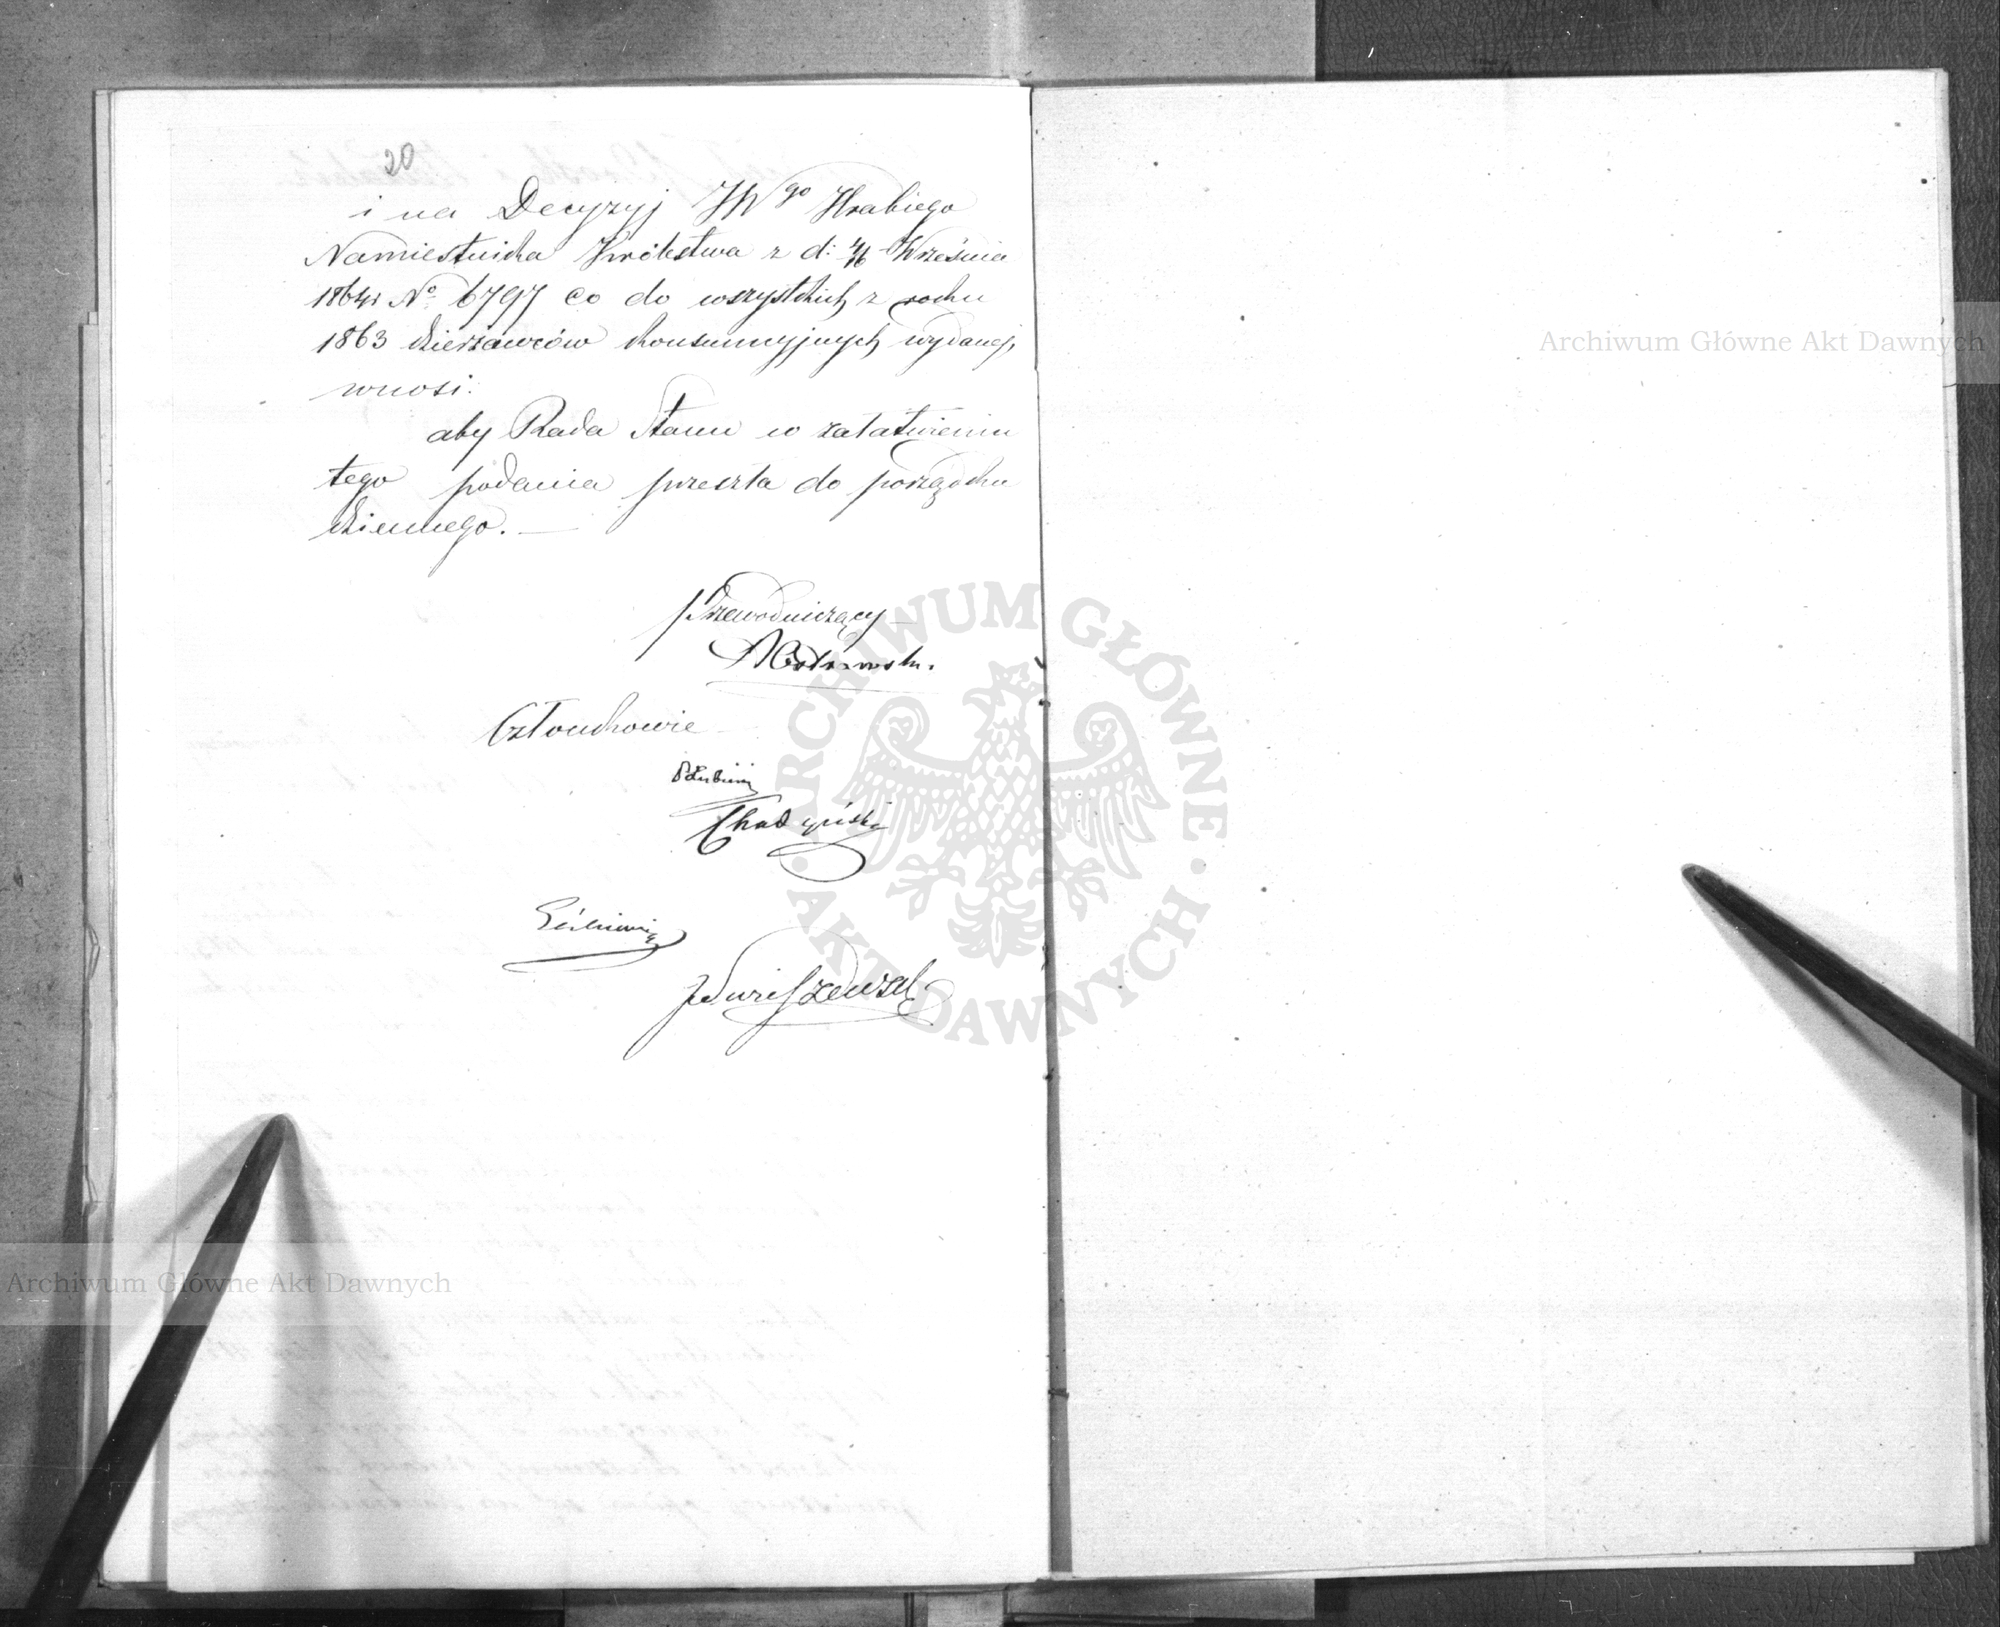 20
i na Decyzyj JW^go Hrabiego
Namiestnika Królestwa z d: 4/16 Września
1864 r No 6797 co do wszystkich z roku
1863 dzierżawców konsumcyjnych wydanej,
wnosi:
aby Rada Stanu w załatwieniu
tego podania przeszła do porządku
dziennego. —
Przewodniczący
Członkowie
Chądzyński
ARCHIWUM GŁÓWNE
AKT DAWNYCH
Archiwum Główne Akt Dawnych
Archiwum Główne Akt Dawnych